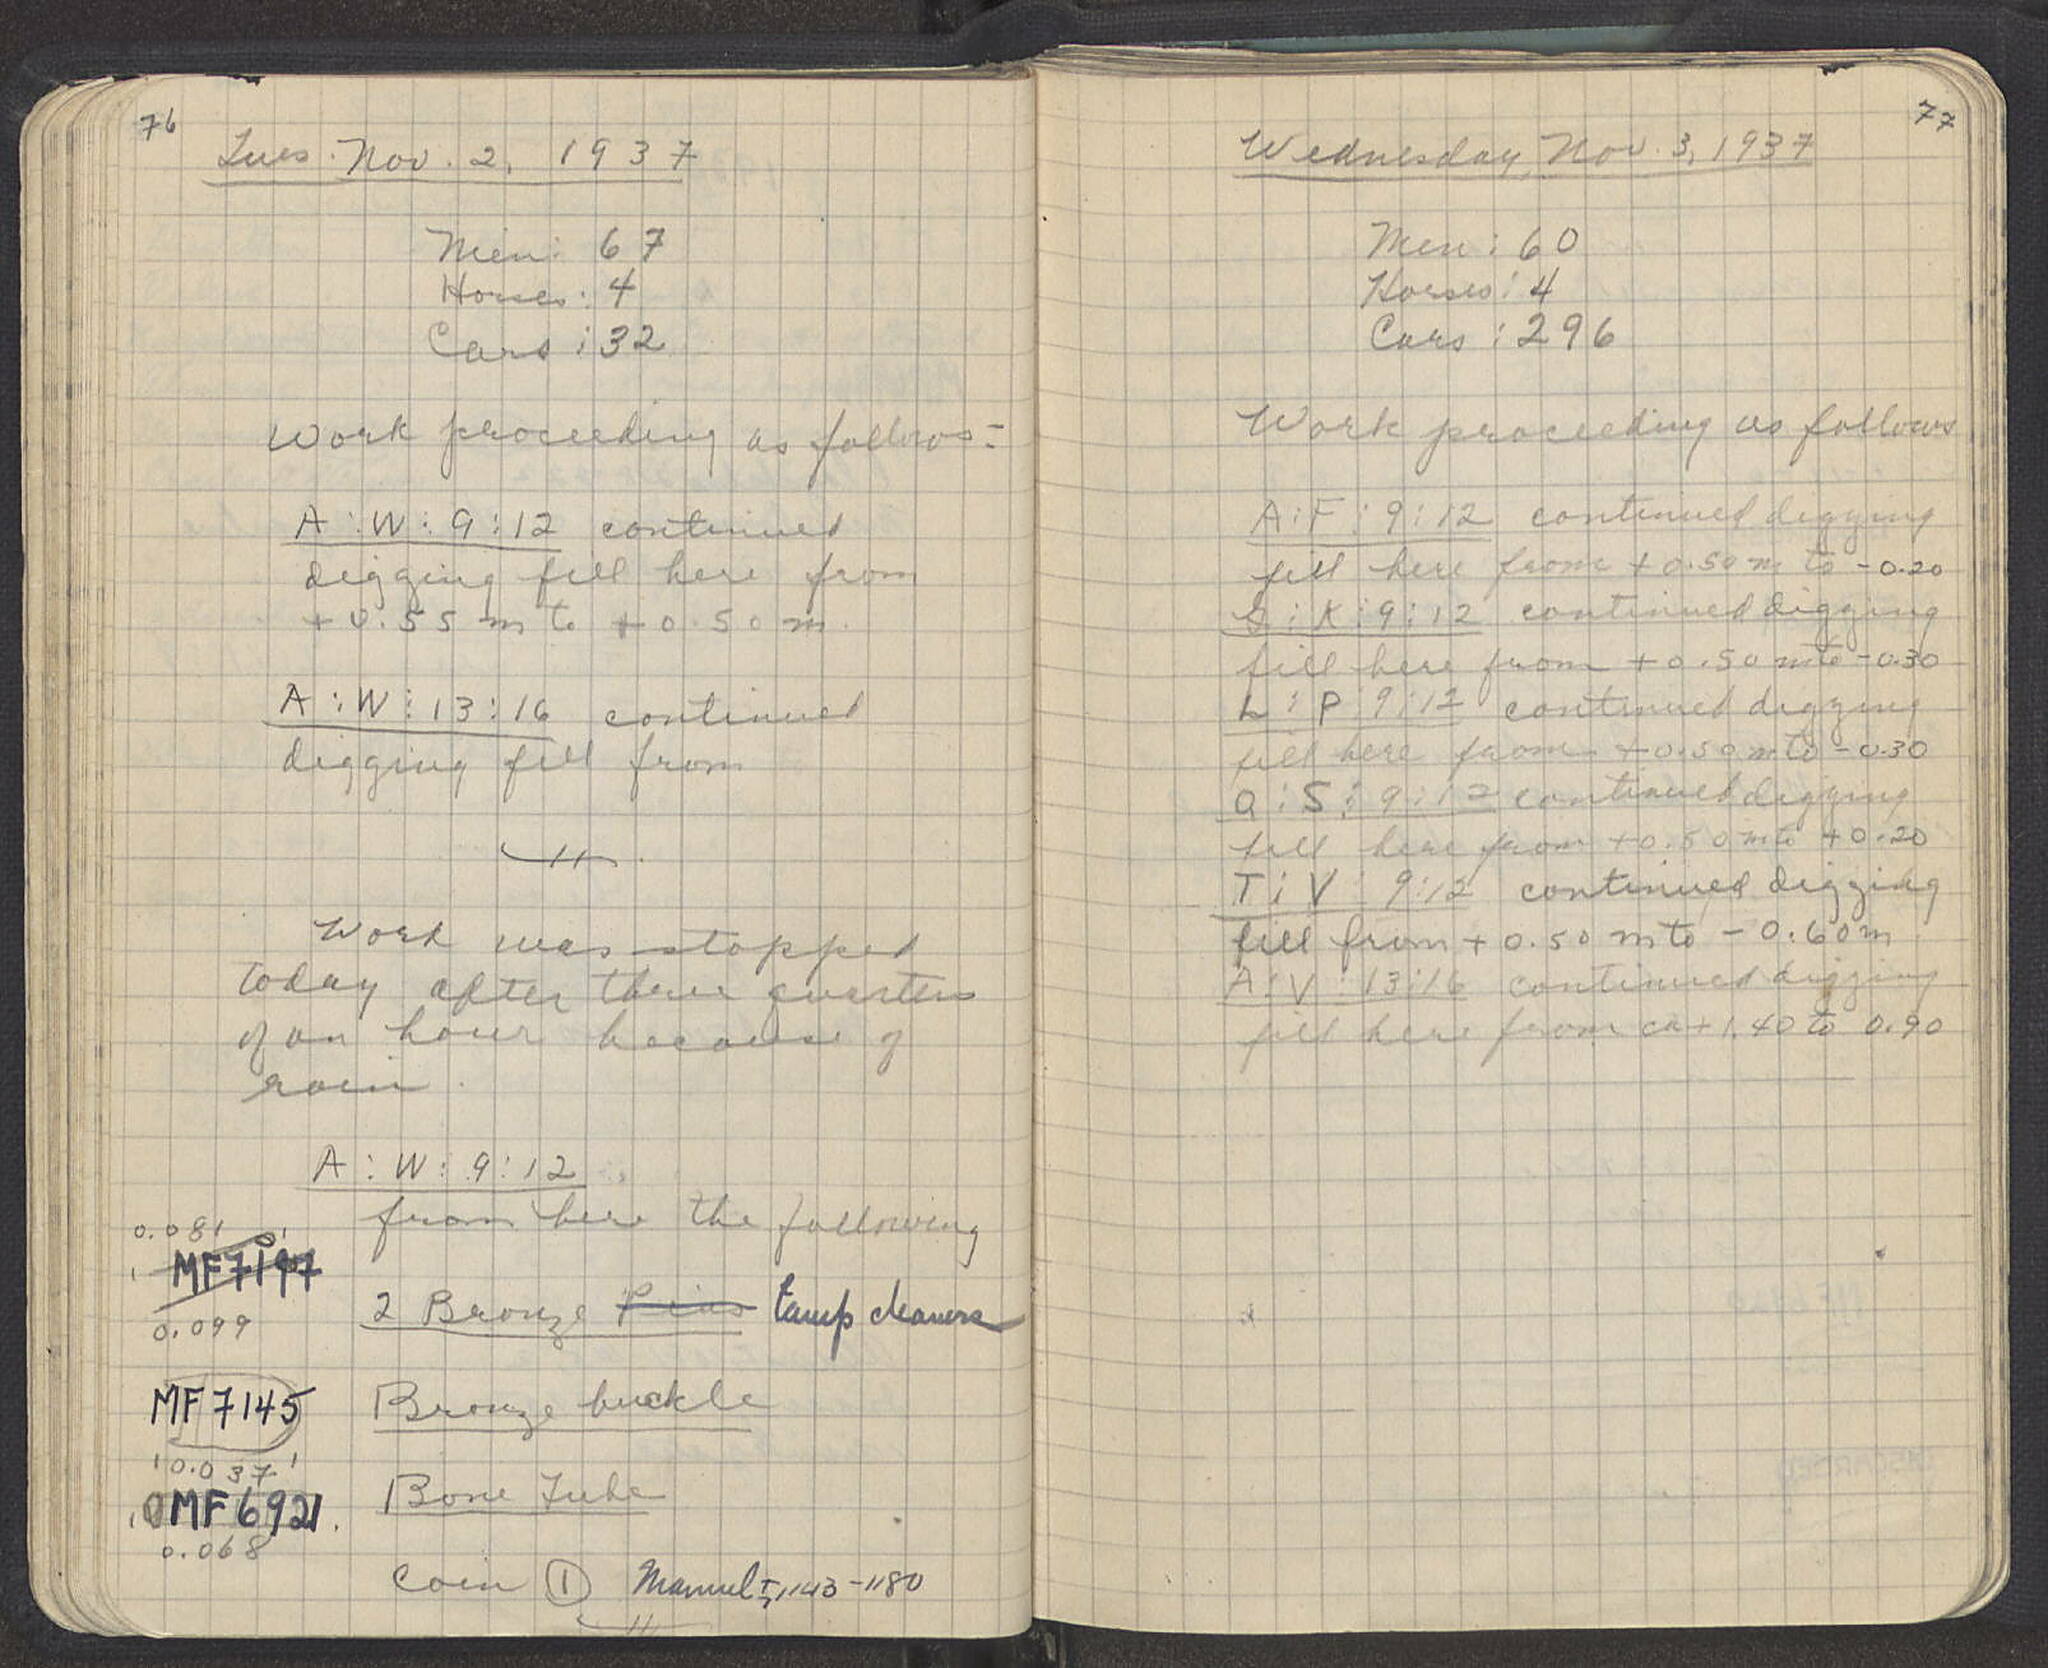 76
Tues. Nov. 2, 1937
Men: 67
Horses: 4
Cars: 32
Work proceeding as follows:-
A:W:9:12 continued
digging fill here from
+0.55 m to +0.50 m.
A:W:13:16 continued
digging fill from
Work was stopped
today after three quarters
of an hour because of
rain.
A:W:9:12
from here the following
0.081
MF7197
0.099
2 Bronze Pins Lamp cleaners
MF7145
Bronze buckle
0.037
MF6921
Bone Tube
0.068
Coin 1 Manuel I, 1143-1180
77
Wednesday, Nov. 3, 1937
Men: 60
Horses: 4
Cars: 296
Work proceeding as follows
A:F:9:12 continued digging
fill here from +0.50 m to -0.20
:K:9:12 continued digging
fill here from +0.50 m to -0.30
L:P:9:12 continued digging
fill here from +0.50 m to -0.30
Q:S:9:12 continued digging
fill here from +0.50 m to +0.20
T:V:9:12 continued digging
fill from +0.50 m to -0.60 m
A:V:13:16 continued digging
fill here from ca +1.40 to 0.90